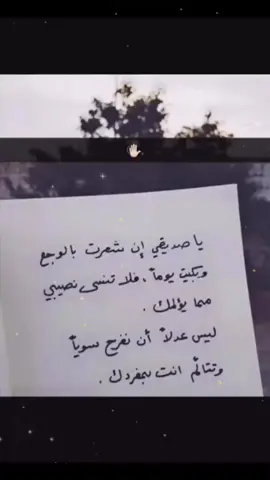 يا صديقي إن شعرت بالوجع
وبكيت يوماً، فلا تنسى نصيبي
مما يؤلمك.
ليس عدلاً أن نفرح سوياً
وتتألم انت بمفردك.